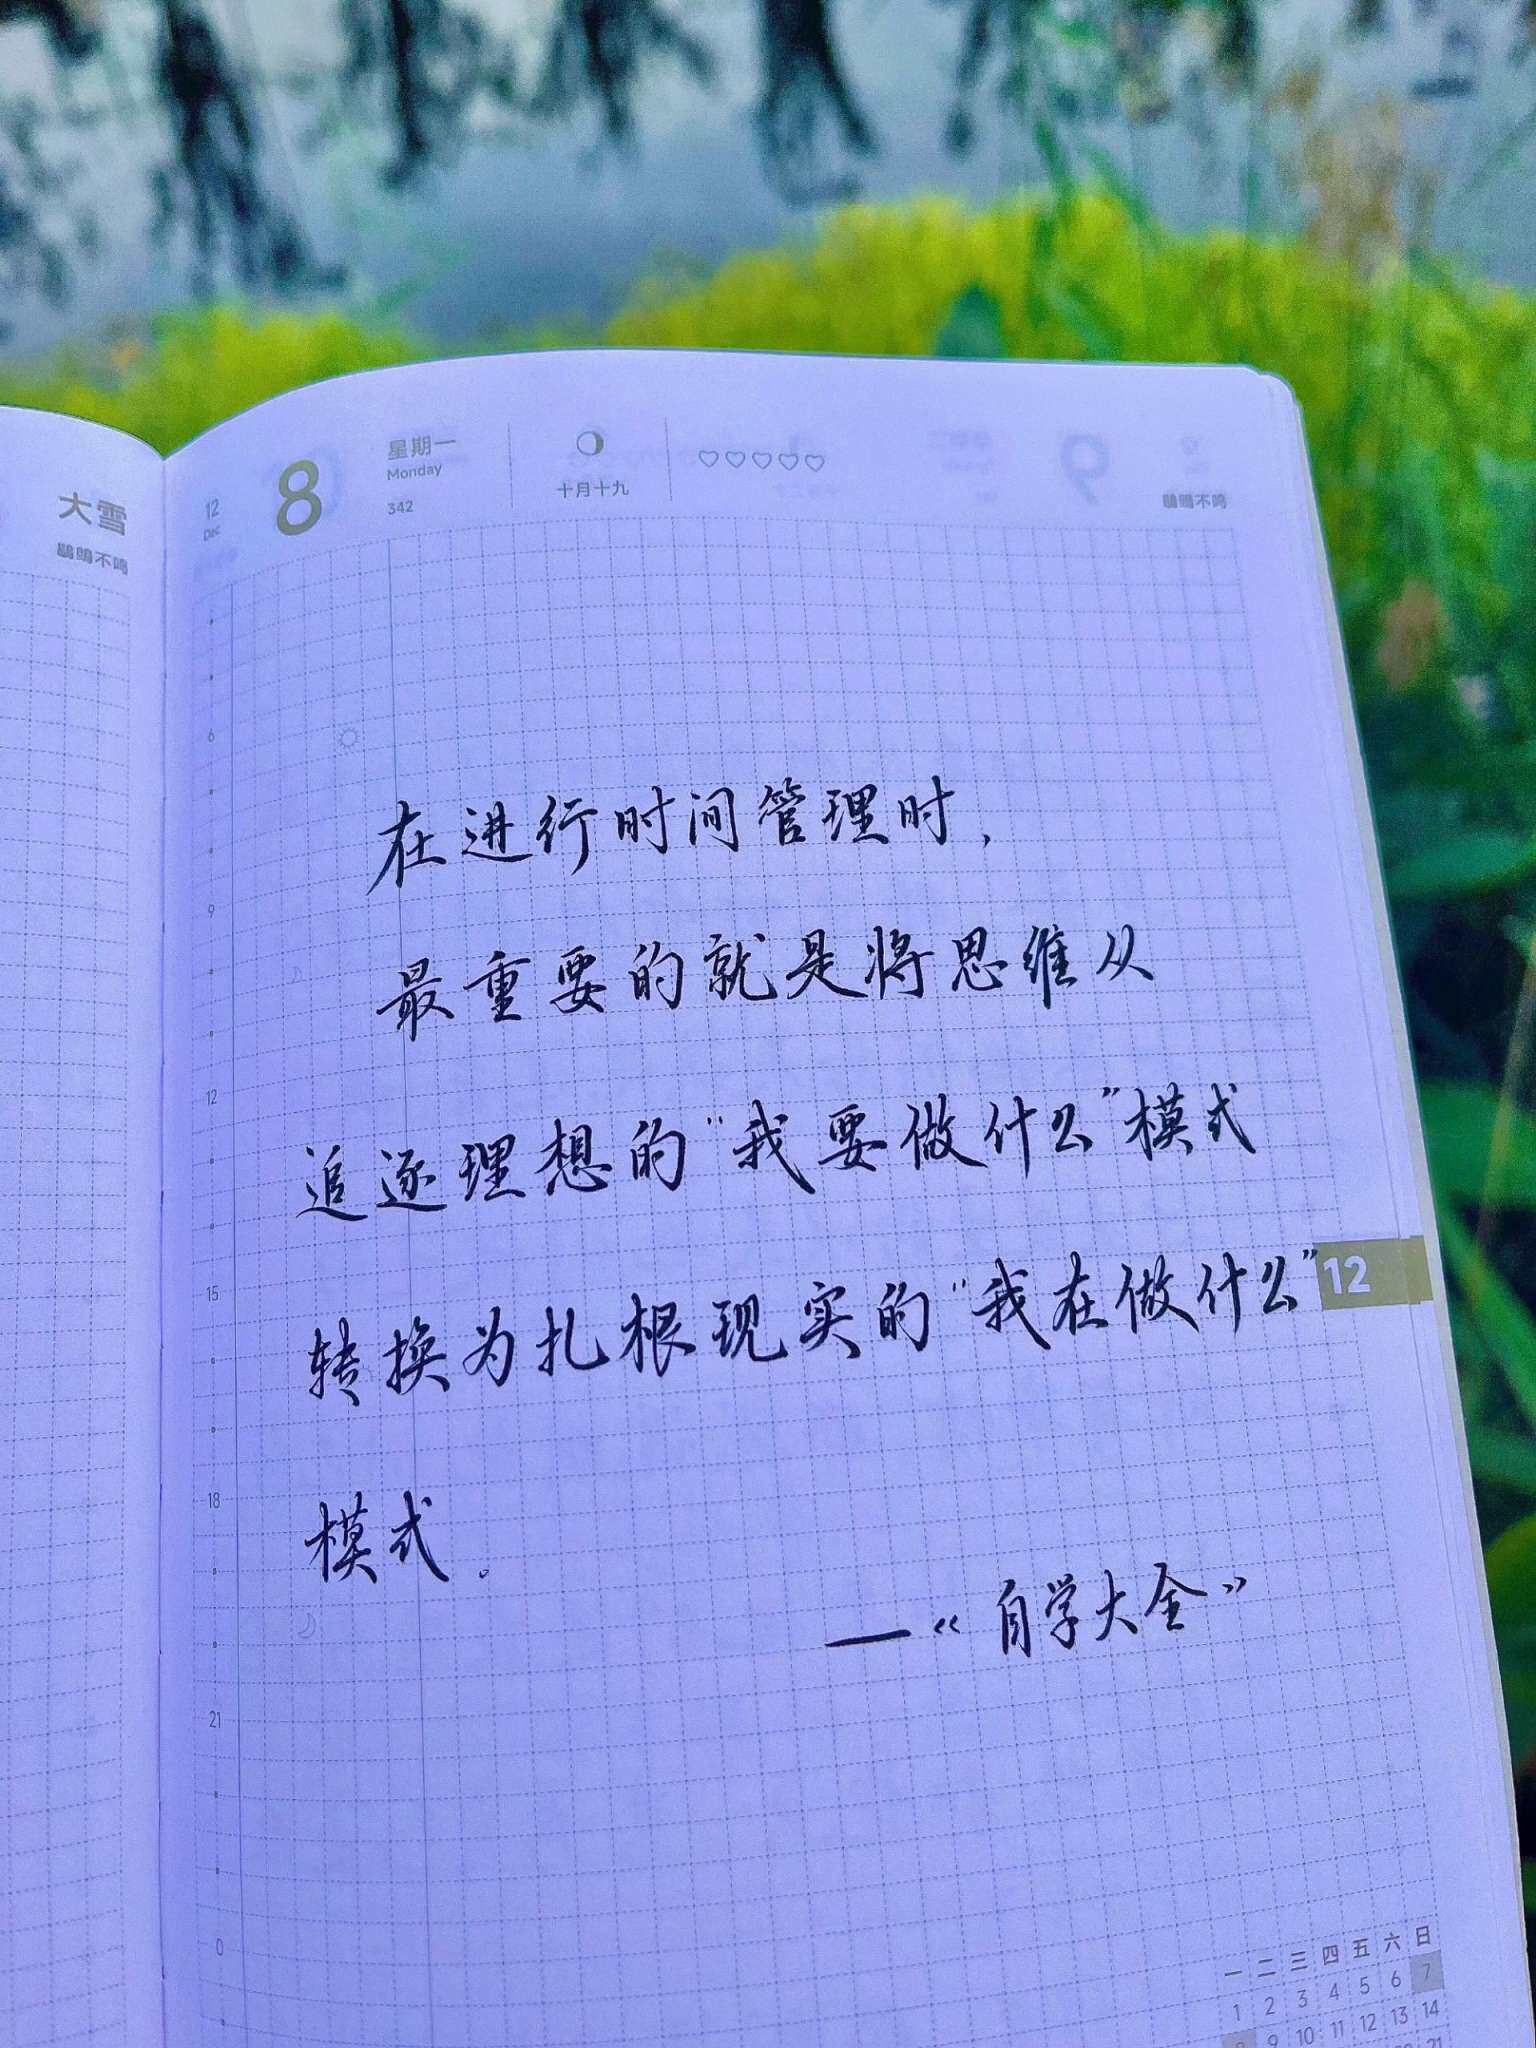 大雪
鹖鴠不鸣
12
Dec
8
星期一
Monday
342
十月十九
鹖鴠不鸣
6
9
12
15
18
21
0
在进行时间管理时，
最重要的就是将思维从
追逐理想的“我要做什么”模式
转换为扎根现实的“我在做什么”
模式。
—《自学大全》
12
一 二 三 四 五 六 日
1 2 3 4 5 6 7
8 9 10 11 12 13 14
21